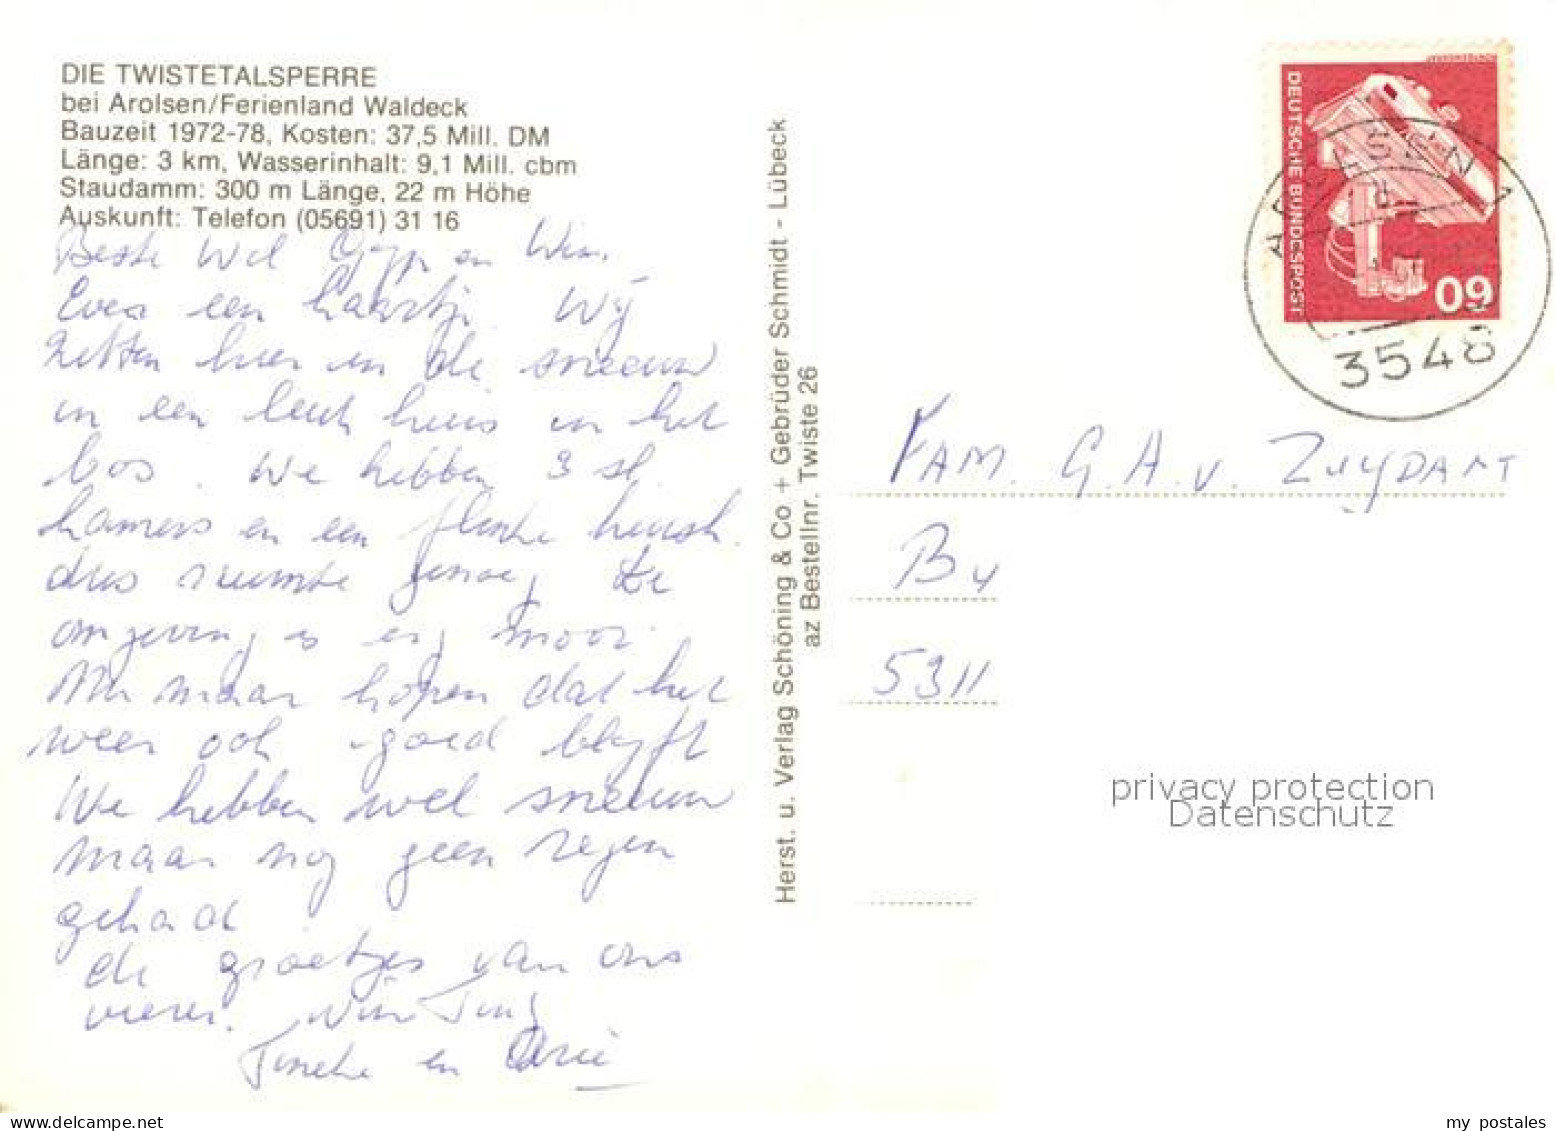 DIE TWISTETALSPERRE
bei Arolsen/Ferienland Waldeck
Bauzeit 1972-78, Kosten: 37,5 Mill. DM
Länge: 3 km, Wasserinhalt: 9,1 Mill. cbm
Staudamm: 300 m Länge, 22 m Höhe
Auskunft: Telefon (05691) 31 16
Beste Wil en Wim.
Even een kaartje. Wij
zitten hier in de sneeuw
in een leuk huis in het
bos. We hebben 3 sl.
kamers en een flinke huisk.
dus ruimte genoeg. De
omgeving is erg mooi.
Nu maar hopen dat het
weer ook goed blijft
We hebben wel sneeuw
maar nog geen regen
gehad
de groetjes van ons
vieren. Wim
en Arie
Herst. u. Verlag Schöning & Co + Gebrüder Schmidt - Lübeck
az Bestellnr. Twiste 26
DEUTSCHE BUNDESPOST
60
AROLSEN 1
d
3548
FAM. G. A. v. ZUYDAM
By
5311
privacy protection
Datenschutz
my postales